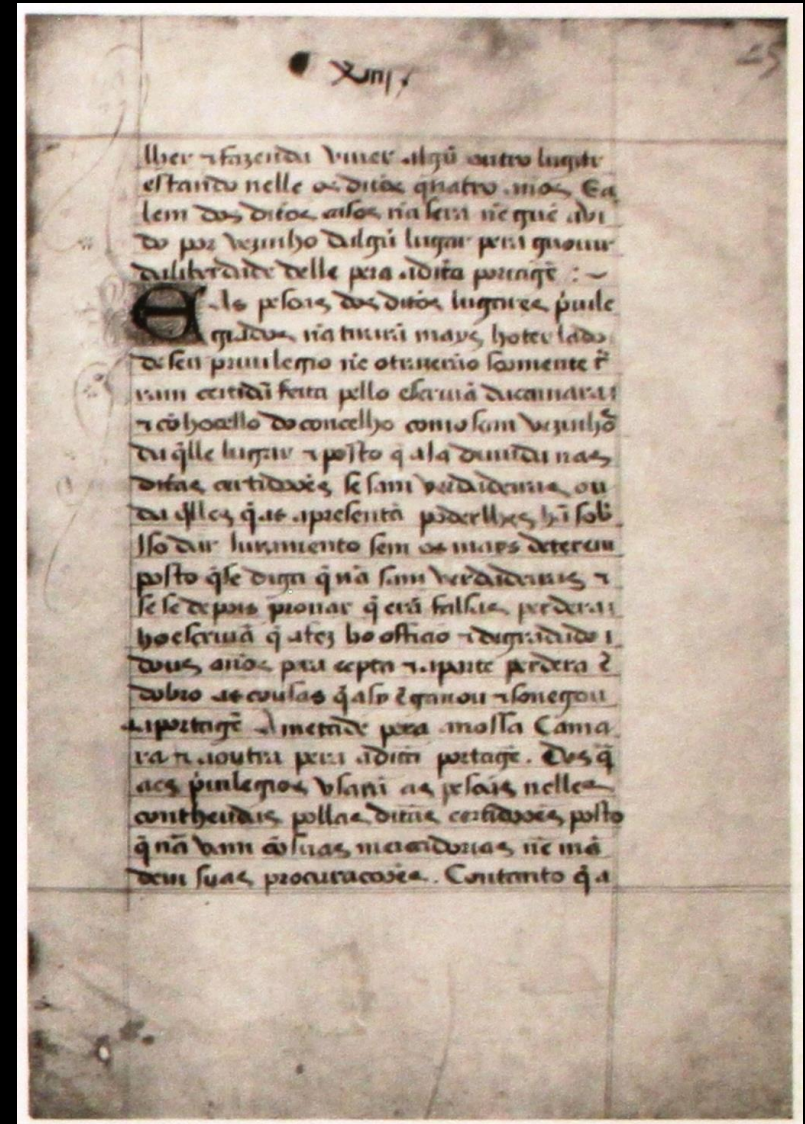 xiiij
25
lher ⁊ fazenda viuer algũ outro lugar
estando nelle os ditos quatro anos E a
lem dos ditos casos nã sera nẽ guẽ aui
do por vezinho dalgũ lugar pera gouuir
da liberdade delle pera a dita portagẽ :~
E As pesoas dos ditos lugares p̃uile
giados nã tirarã mays ho terlado
de seu priuilegio nẽ o traueão somente t̃
ram certidã feita pello escriuã da camara
⁊ cõ ho sello do concelho como sam vezinhõ
da q̃lle lugar ⁊ posto q̃ aja duuida nas
ditas certidoões se sam verdadeiras ou
da q̃lles q̃ as apresentã poderlhes hã sob̃
Isso dar Iuramento sem os mays deterem
posto q̃ se diga q̃ nã sam verdadeiras ⁊
se se depois prouar q̃ erã falsas perdera
ho escriuã q̃ as fez ho officio ⁊ degradado
dous anos pera cepta ⁊ a parte perdera ẽ
dobro as cousas q̃ asy ẽganou ⁊ sonegou
a portagẽ A metade pera a nossa Cama
ra ⁊ a outra pera a dita portagẽ. Dos q̃
aes p̃uilegios vsarã as pesoas nelles
contheudas pollas ditas certidoões posto
q̃ nã vam cõ suas mercadorias nẽ mã
dem suas procuracoões. Contanto q̃ a